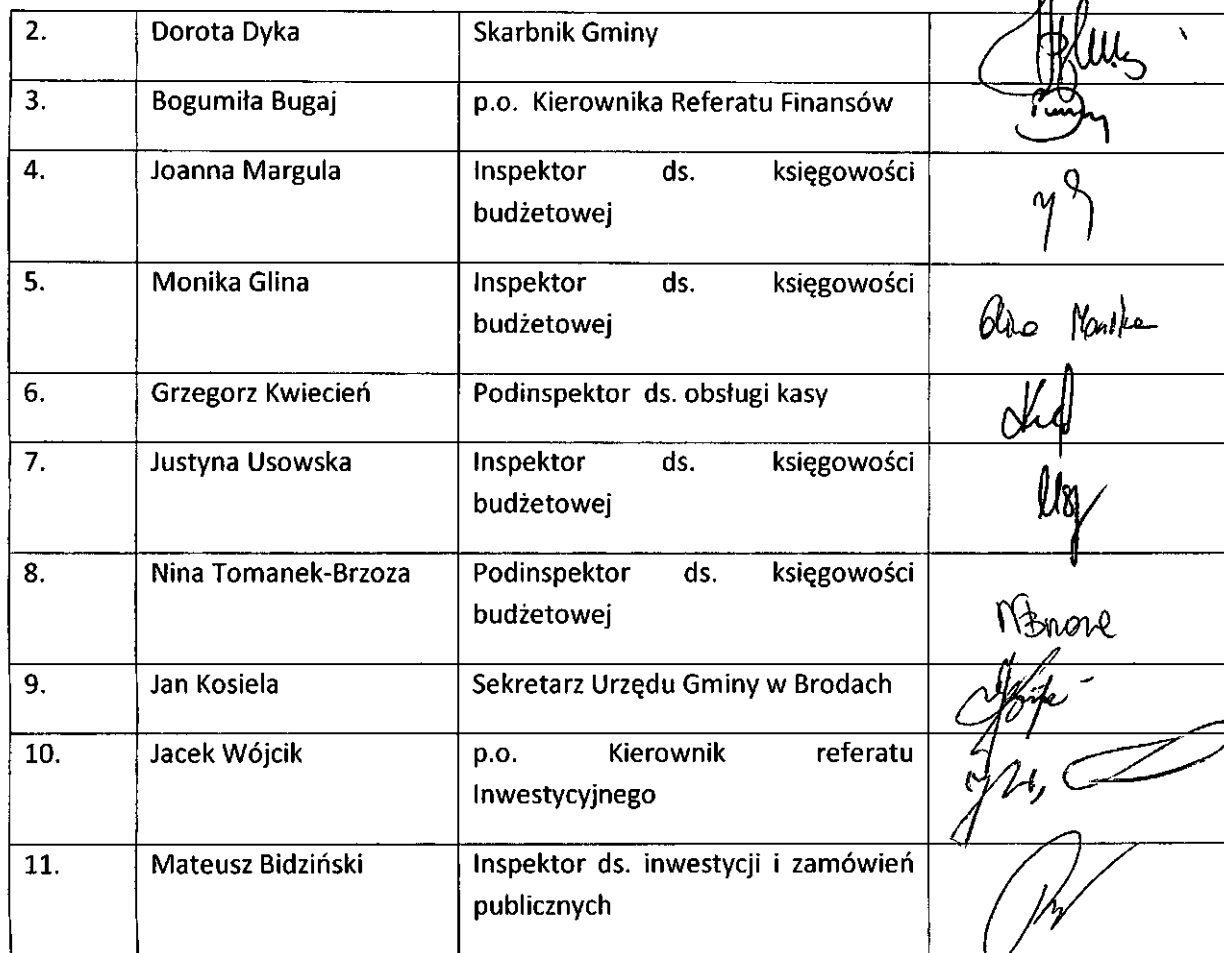 2. Dorota Dyka Skarbnik Gminy
3. Bogumiła Bugaj p.o. Kierownika Referatu Finansów
4. Joanna Margula Inspektor ds. księgowości
budżetowej
5. Monika Glina Inspektor ds. księgowości
budżetowej
Glina Monika
6. Grzegorz Kwiecień Podinspektor ds. obsługi kasy
7. Justyna Usowska Inspektor ds. księgowości
budżetowej
8. Nina Tomanek-Brzoza Podinspektor ds. księgowości
budżetowej
9. Jan Kosiela Sekretarz Urzędu Gminy w Brodach
10. Jacek Wójcik p.o. Kierownik referatu
Inwestycyjnego
11. Mateusz Bidziński Inspektor ds. inwestycji i zamówień
publicznych